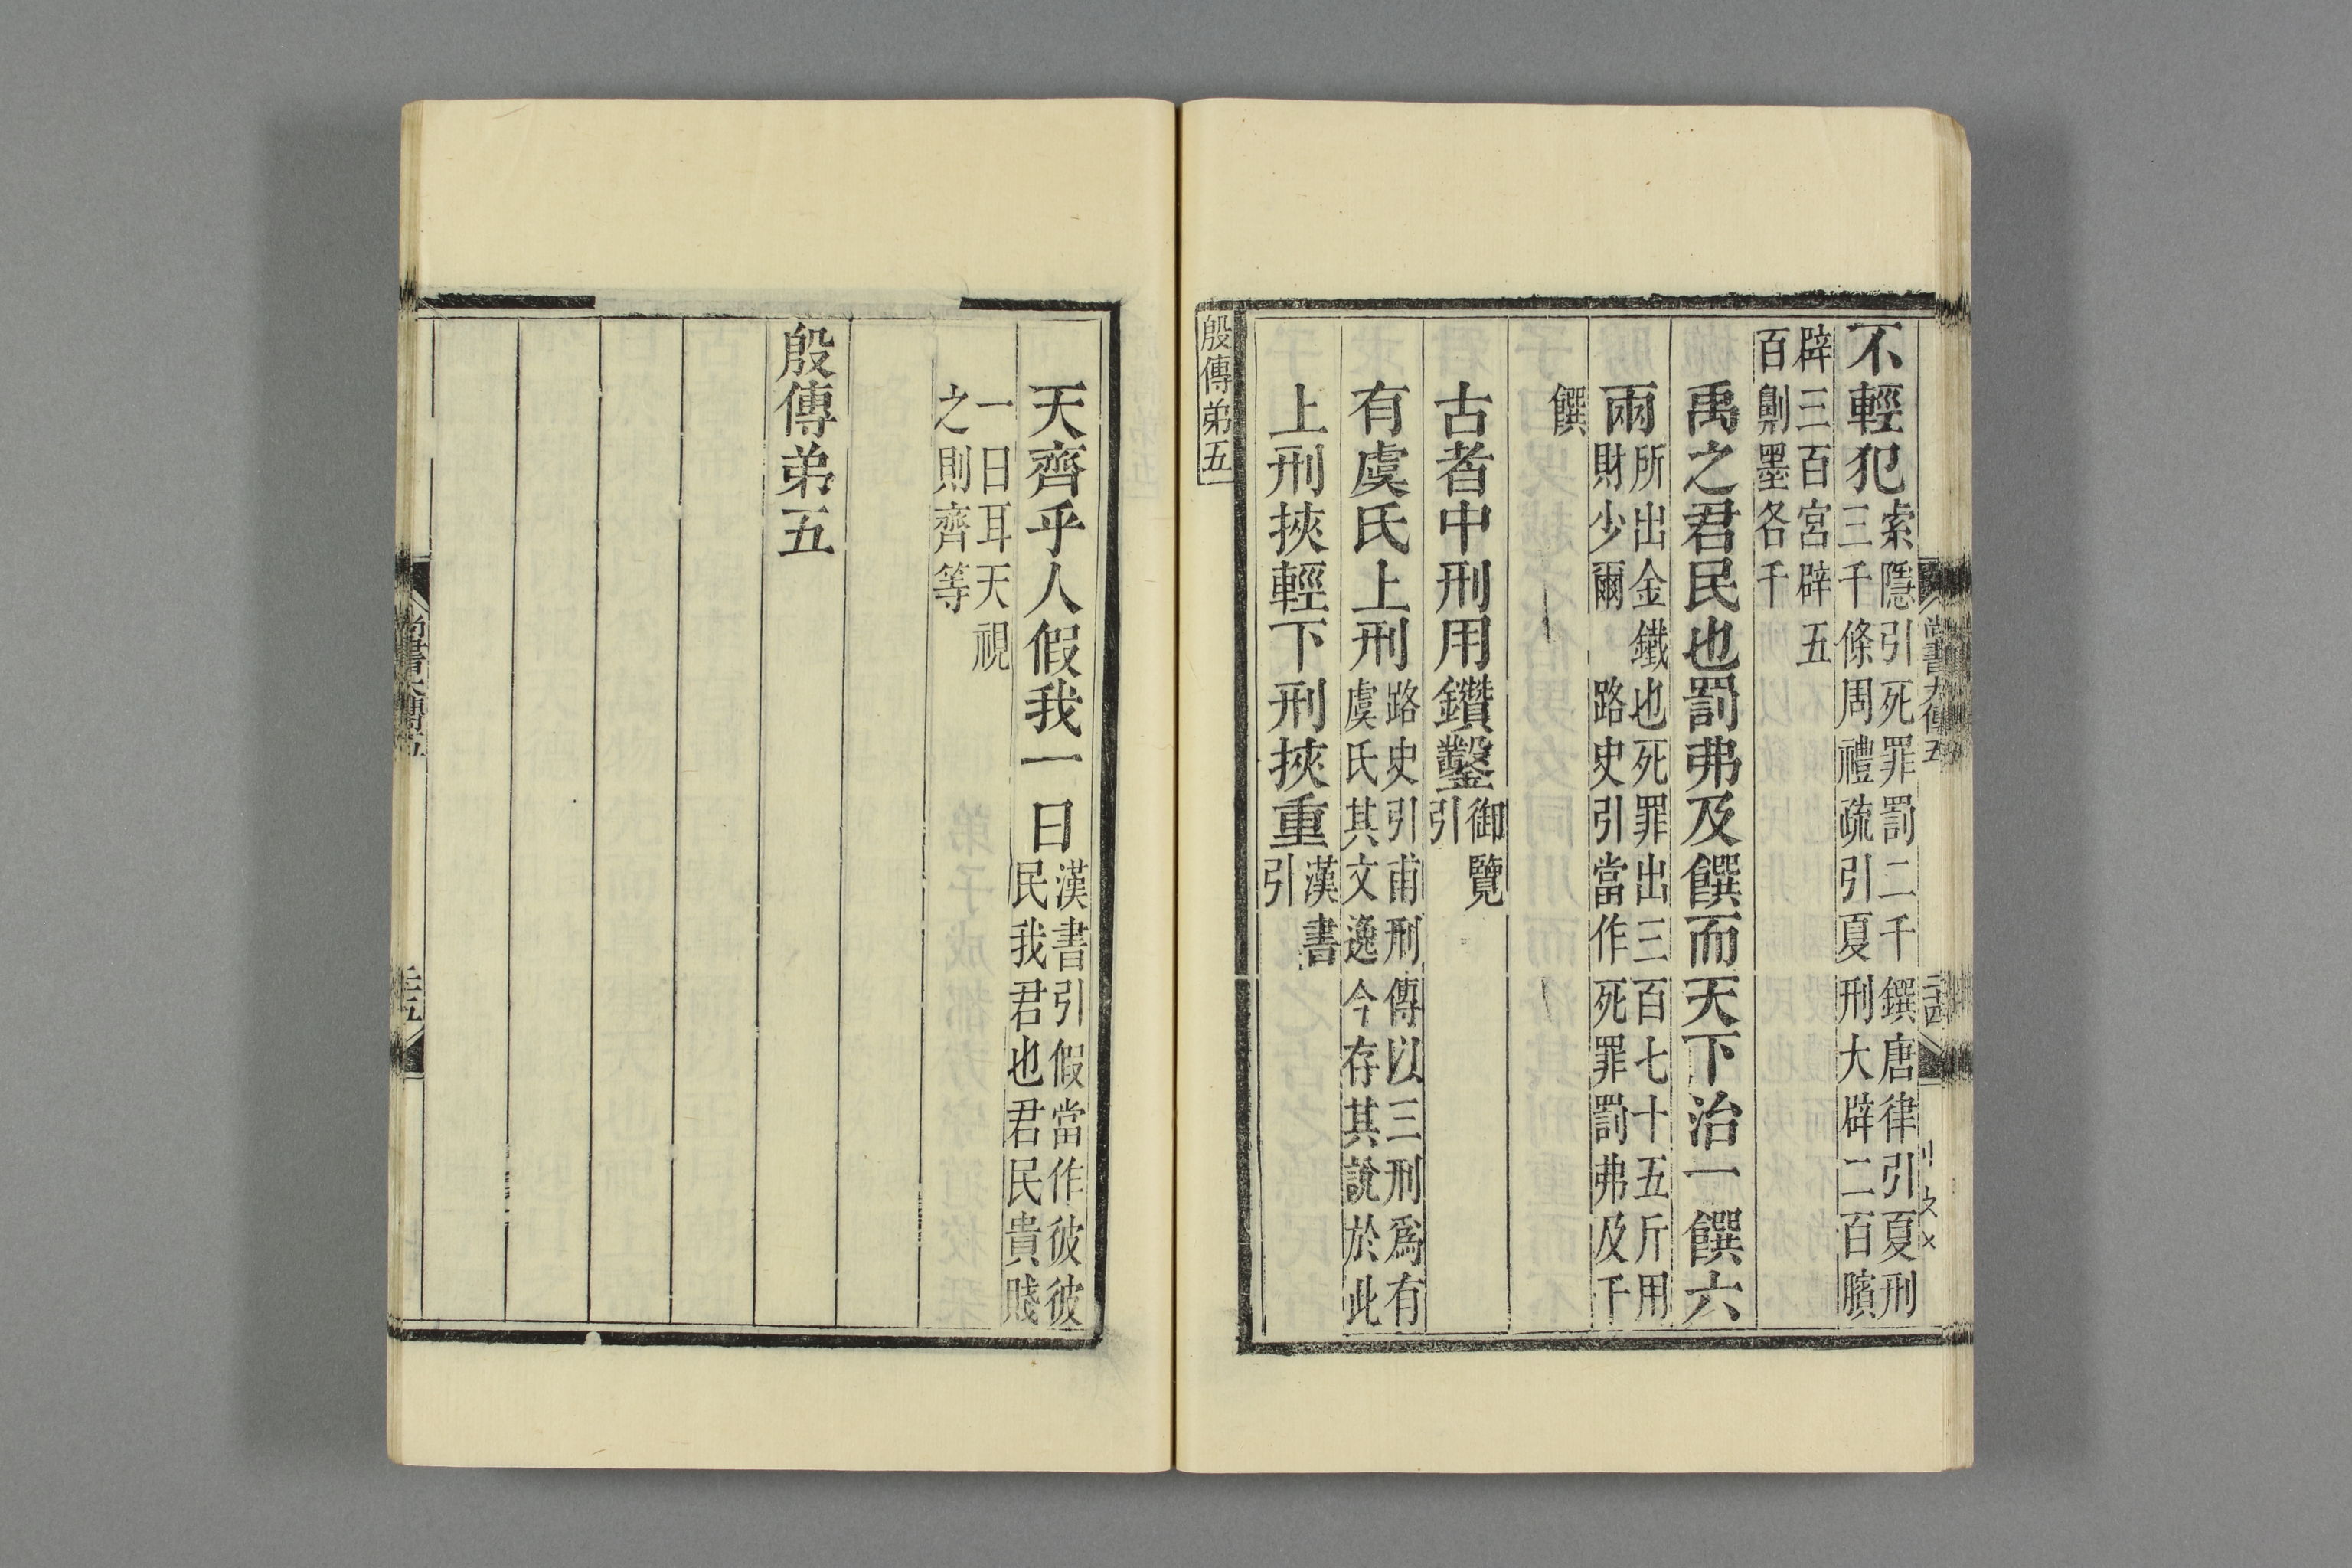 不輕犯索隱引死罪罰二千鐉唐律引夏刑三千條周禮疏引夏刑大辟二百臏
辟三百宮辟五百劓墨各千
禹之君民也罰弗及饌而天下治一饌六
兩所出金鐵也死罪出三百七十五斤用財少爾 路史引當作死罪罰弗及千
饌
古者中刑用鑽鑿御覽引
有虞氏上刑路史引甫刑傳以三刑爲有虞氏其文逸今存其說於此
上刑挾輕下刑挾重漢書引
殷傳弟五
天齊乎人假我一日漢書引假當作彼彼民我君也君民貴賤
一日耳天視之則齊等
殷傳弟五
尚書大傳五